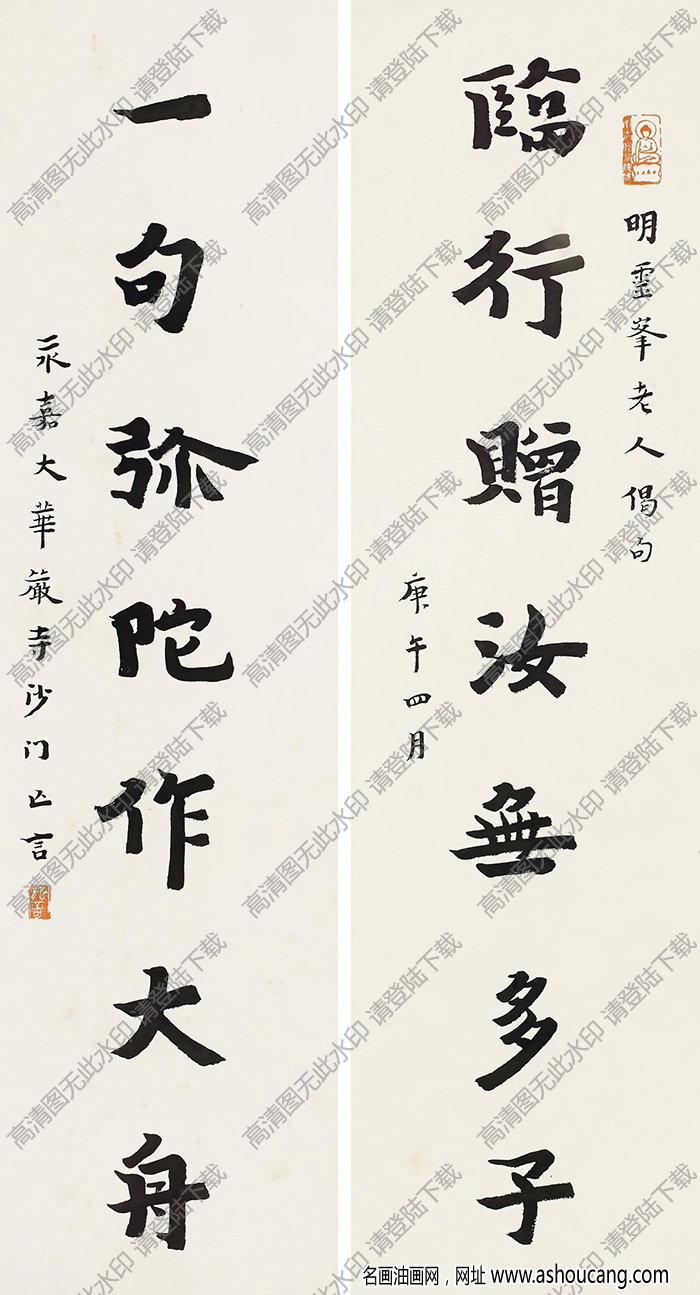 明靈峯老人偈句
臨行贈汝無多子
庚午四月
一句弥陀作大舟
永嘉大華嚴寺沙门亡言
高清图无此水印 请登陆下载
名画油画网，网址 www.ashoucang.com